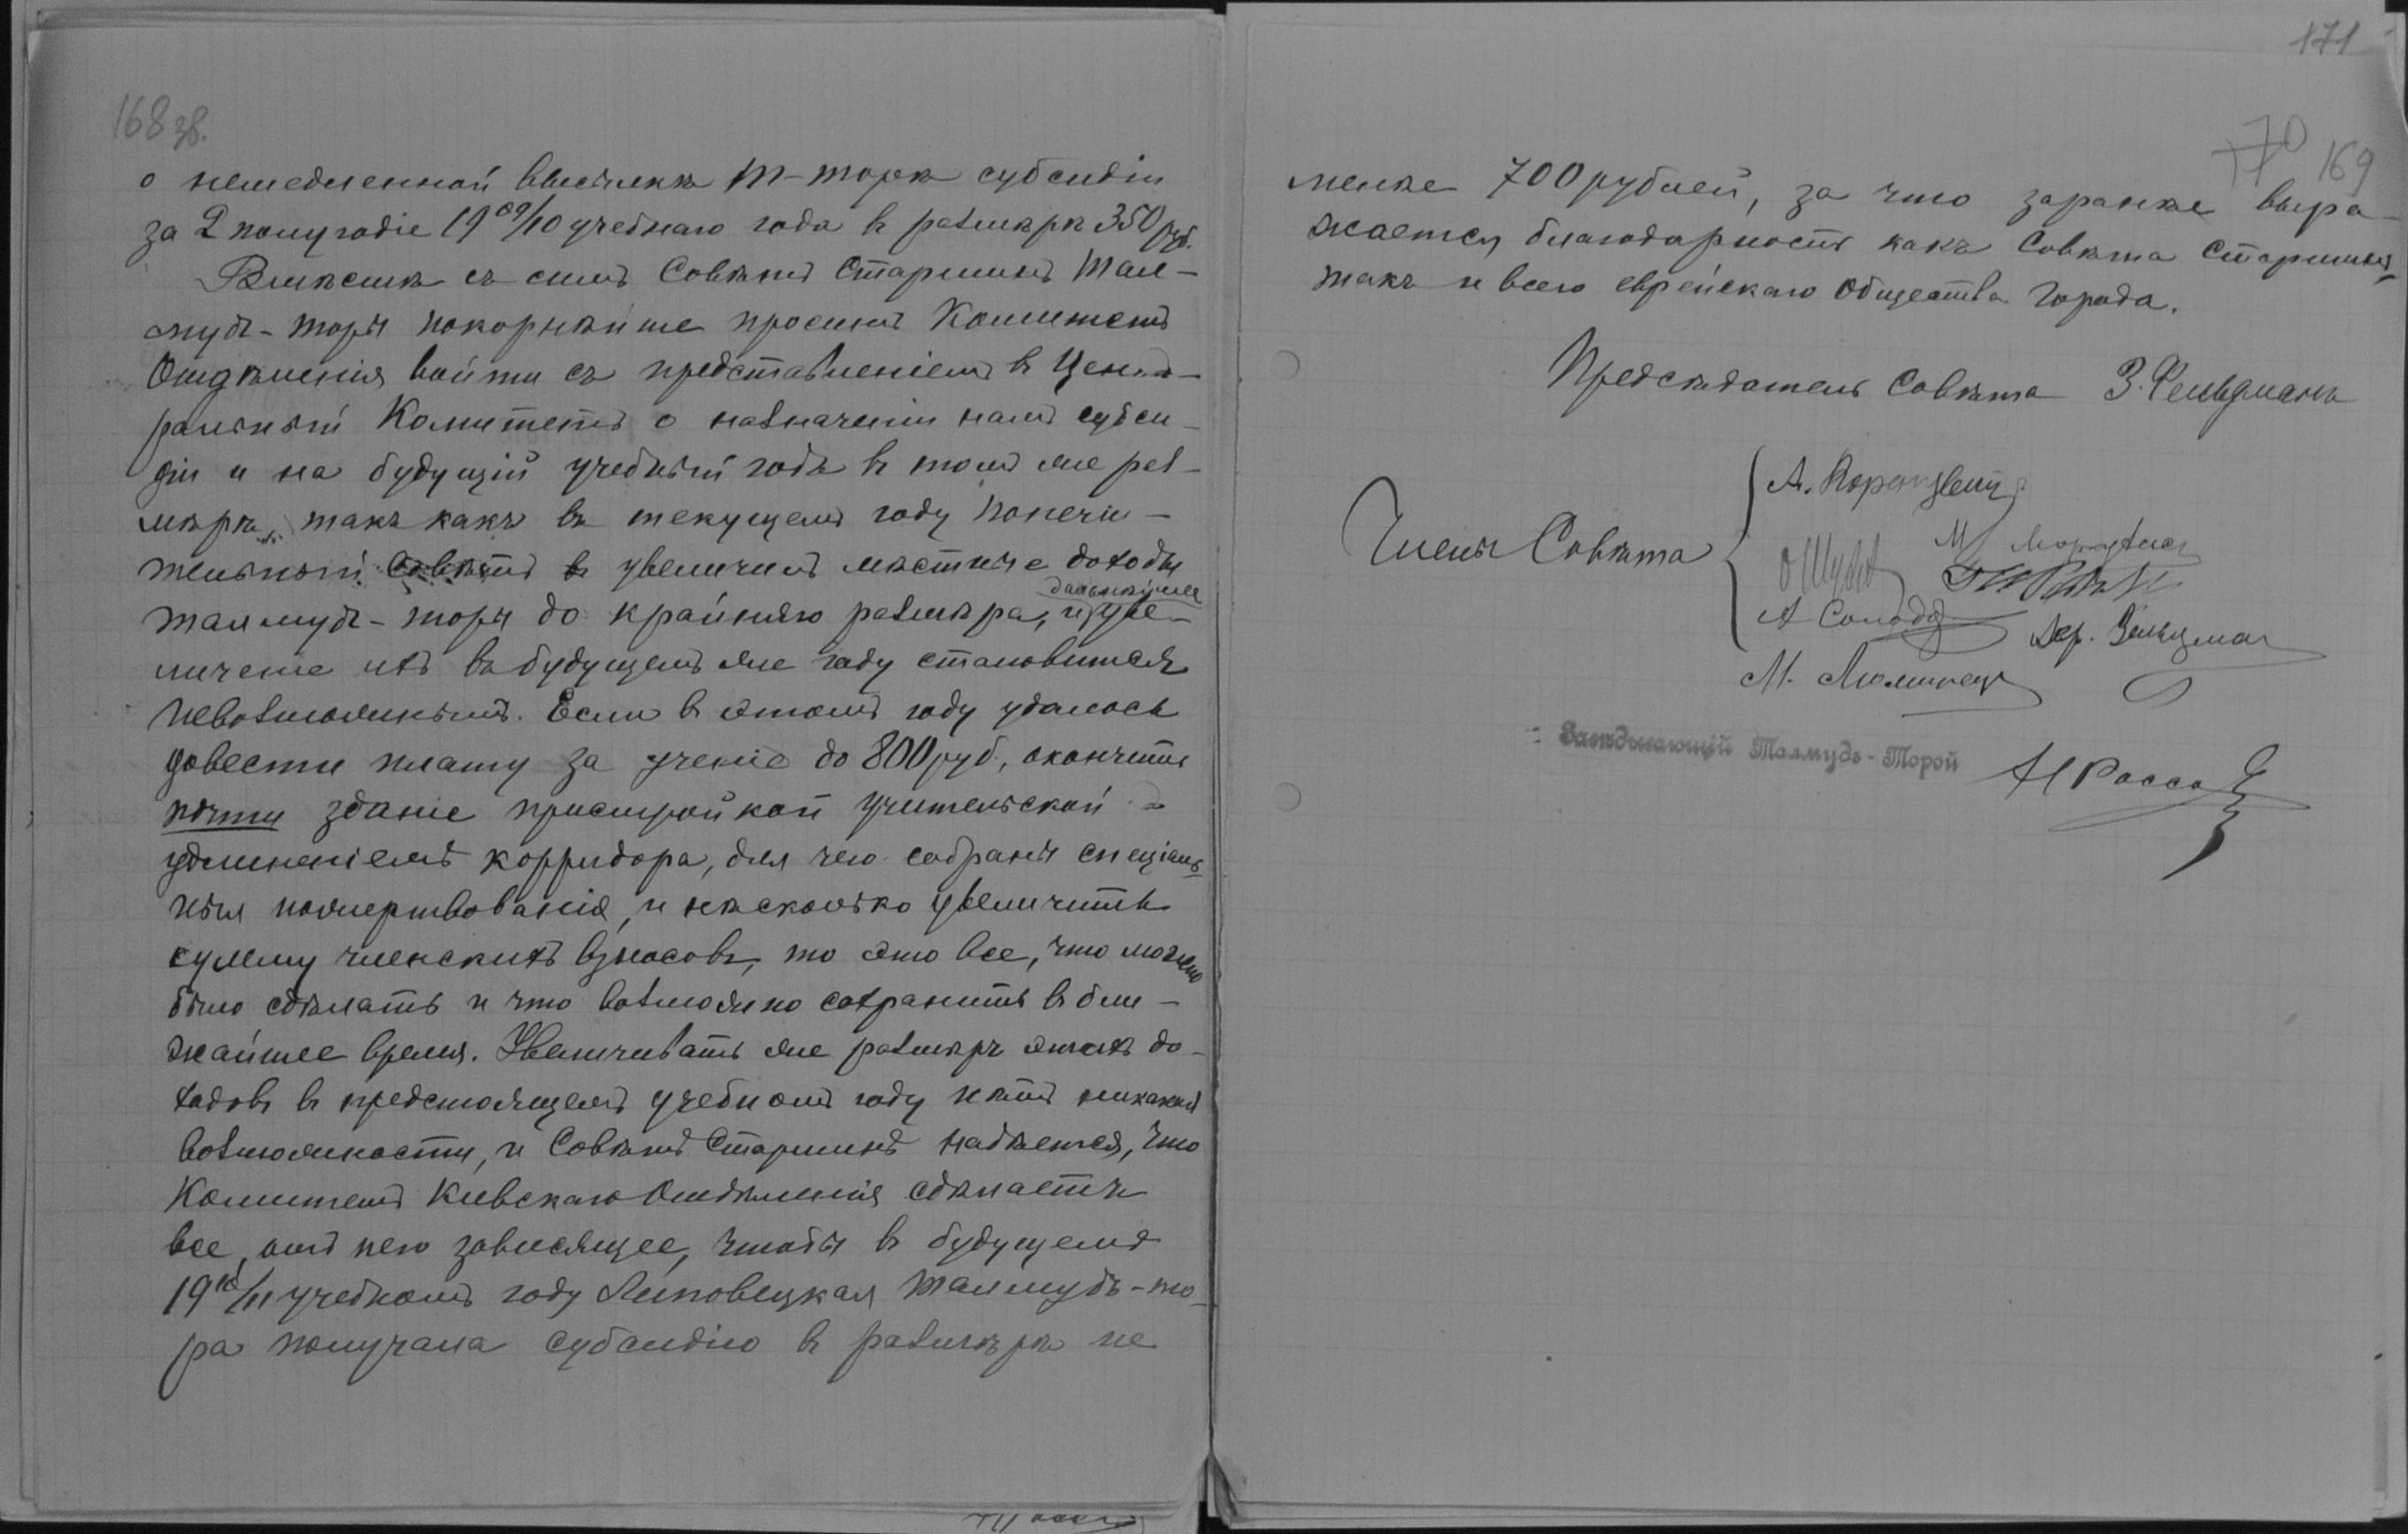 168 зв.
о немедленной высылкѣ Т-торѣ субсидіи
за 2 полугодіе 1909/10 учебнаго года в размѣрѣ 350 руб.
Вмѣстѣ съ симъ Совѣтъ Старшинъ Тал-
мудъ-торы покорнѣйше проситъ Комитетъ
Отдѣленія войти съ представленіемъ в Цент-
ральный Комитетъ о назначеніи намъ субси-
діи и на будущій учебный годъ в томъ же раз-
мѣрѣ, такъ какъ въ текущемъ году Попечи-
тельный Совѣтъ увеличилъ мѣстные доходы
талмудъ-торы до крайняго размѣра, и дальнѣйшее уве-
личеніе ихъ въ будущемъ же году становится
невозможнымъ. Если в этомъ году удалось
довести плату за ученіе до 800 руб., окончить
почти зданіе пристройкой учительской и
удлиненіемъ корридора, для чего собраны спеціаль-
ныя пожертвованія, и нѣсколько увеличить
сумму членскихъ взносовъ, то это все, что можно
было сдѣлать и что возможно сохранить в бли-
жайшее время. Увеличивать же размѣръ этихъ до-
ходовъ в предстоящемъ учебномъ году нѣтъ никакой
возможности, и Совѣтъ Старшинъ надѣется, что
Комитетъ Кіевскаго Отдѣленія сдѣлаетъ
все, отъ него зависящее, чтобы в будущемъ
1910/11 учебномъ году Липовецкая Талмудъ-то-
ра получала субсидію в размѣрѣ не
171
170 169
менѣе 700 рублей, за что заранѣе выра-
жается благодарность какъ Совѣта Старшинъ,
такъ и всего еврейскаго Общества города.
Предсѣдатель Совѣта З. Фельдманъ
Члены Совѣта
А.
М
О Шульт
А Солодо
М. Люминец
Завѣдывающій Талмудъ-Торой
Н Россо